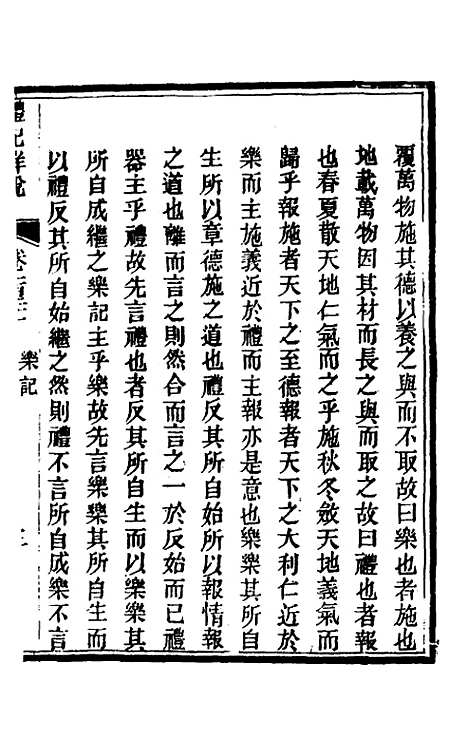 覆萬物施其德以養之與而不取故曰樂也者施也
地載萬物因其材而長之與而取之故曰禮也者報
也春夏散天地仁氣而而之乎施秋冬斂天地義氣而
歸乎報施者天下之至德報者天下之大利仁近於
樂而主施義近於禮而主報亦是意也樂樂其所自
生所以章德施之道也禮反其所自始所以報情報
之道也離而言之則然合而言之一於反始而已禮
器主乎禮故先言禮也者反其所自生而以樂樂其
所自成繼之樂記主乎樂故先言樂樂其所自生而
以禮反其所自始繼之然則禮不言所自成樂不言
禮記詳說
樂記
三